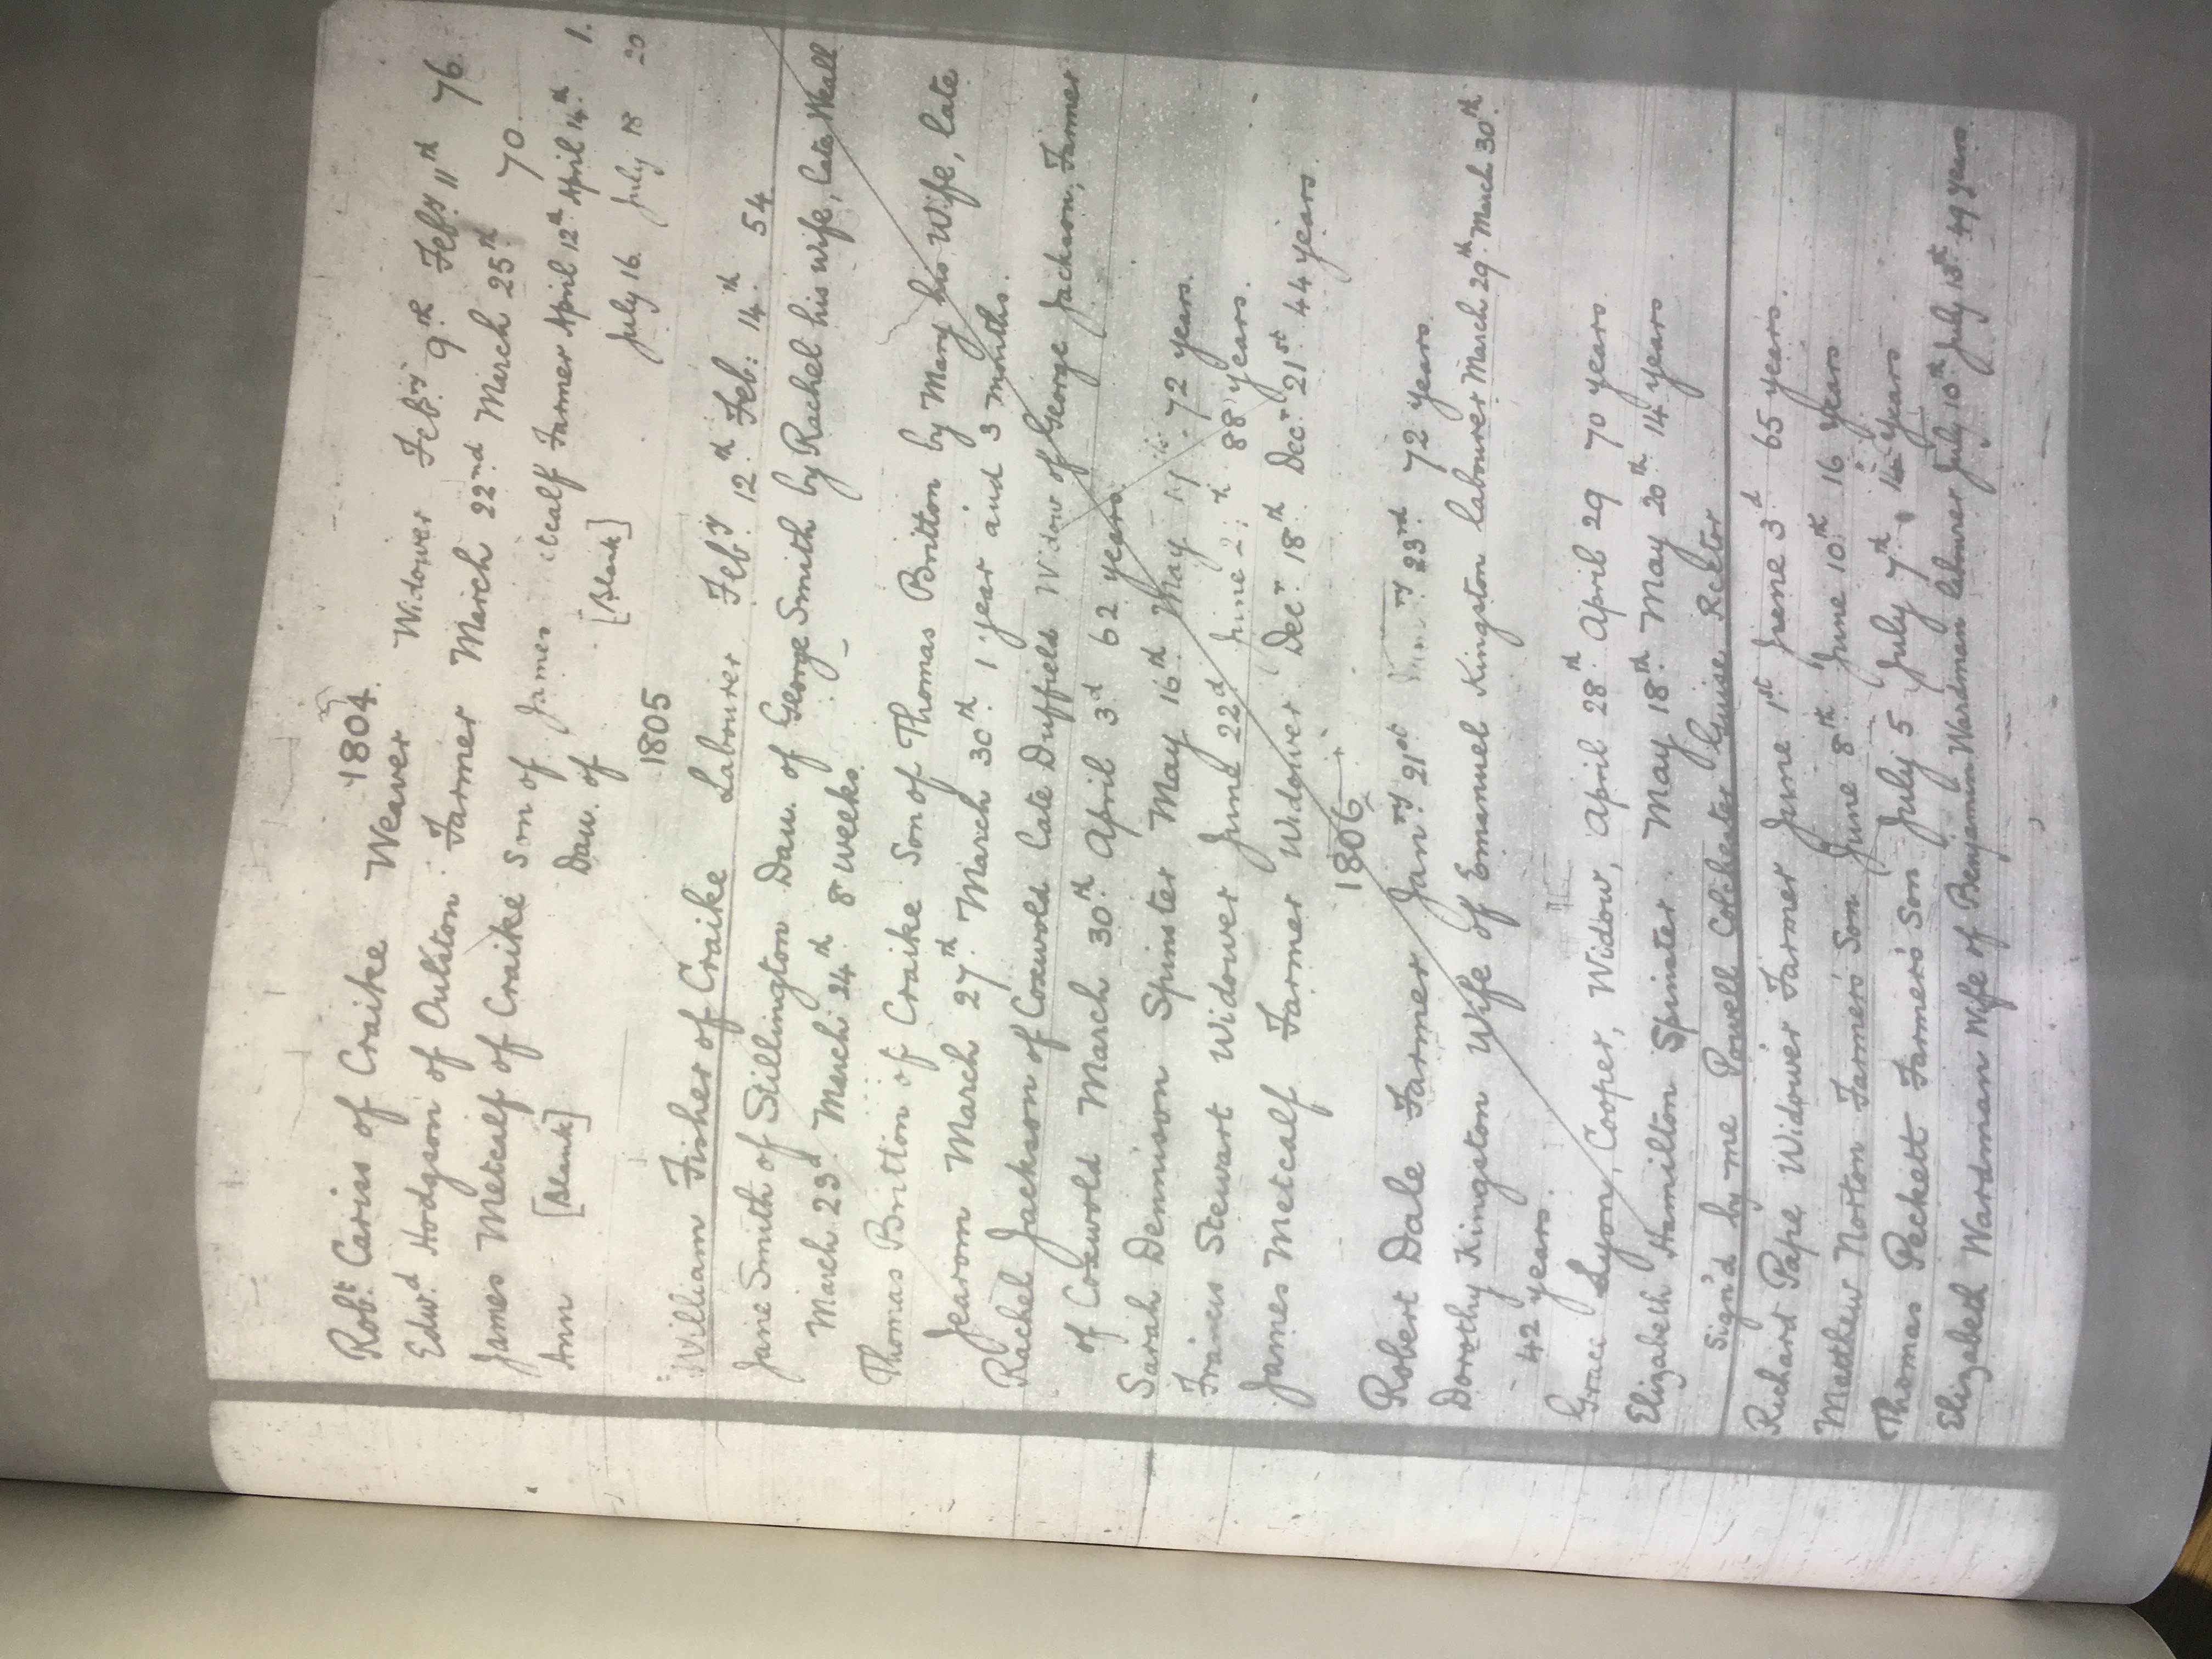 1804.
Robt. Cariss of Craike Weaver Widower Feb.ry 9th Feb.ry 11th 76.
Edw.d Hodgson of Oulston Farmer March 22nd March 25th 70.
James Metcalf of Craike Son of James etcalf Farmer April 12th April 14th 1.
Ann [Blank] Dau. of [Blank] July 16. July 18 20
1805
William Fisher of Craike Labourer Feb.ry 12th Feb: 14th 54.
Jane Smith of Stillington Dau. of George Smith by Rachel his wife, late Weall
March 23d March 24th 8 weeks.
Thomas Britton of Craike Son of Thomas Britton by Mary his Wife, late
Jearom March 27th March 30th 1 year and 3 months.
Rachel Jackson of Coxwold Late Duffield Widow of George Jackson, Farmer
of Coxwold March 30th April 3d 62 years.
Sarah Dennison Spinster May 16th May 72 years.
Francis Stewart Widower June 22d June 88 years.
James Metcalf Farmer Widower Decr 18th Decr 21st 44 years.
1806
Robert Dale Farmer Jan.ry 21st ry 23rd 72 years.
Dorothy Kingston Wife of Emanuel Kingston labourer March 29th March 30th
42 years.
Grace Lyon, Cooper, Widow, April 28th April 29 70 years.
Elizabeth Hamilton Spinster May 18th May 20th 14 years
Sign'd by me Powell Colchester Guise Rector
Richard Pape Widower Farmer June 1st June 3d 65 years.
Matthew Norton Farmer's Son June 8th June 10th 16 years
Thomas Peckett Farmer's Son July 5 July 7th 14 years
Elizabeth Wardman Wife of Benjamin Wardman labourer July 10th July 13th 49 years.